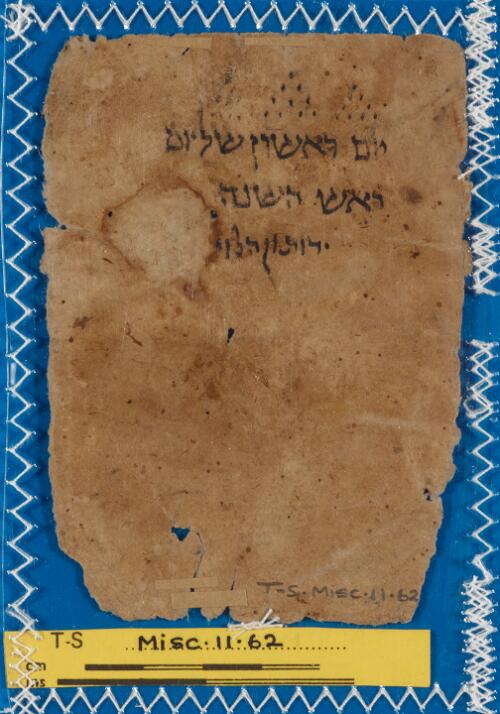 יום ראשון שליום
ראש השנה
ידותון הלוי
T-S. Misc. 11. 62
T-S Misc. 11. 62
cm
ins